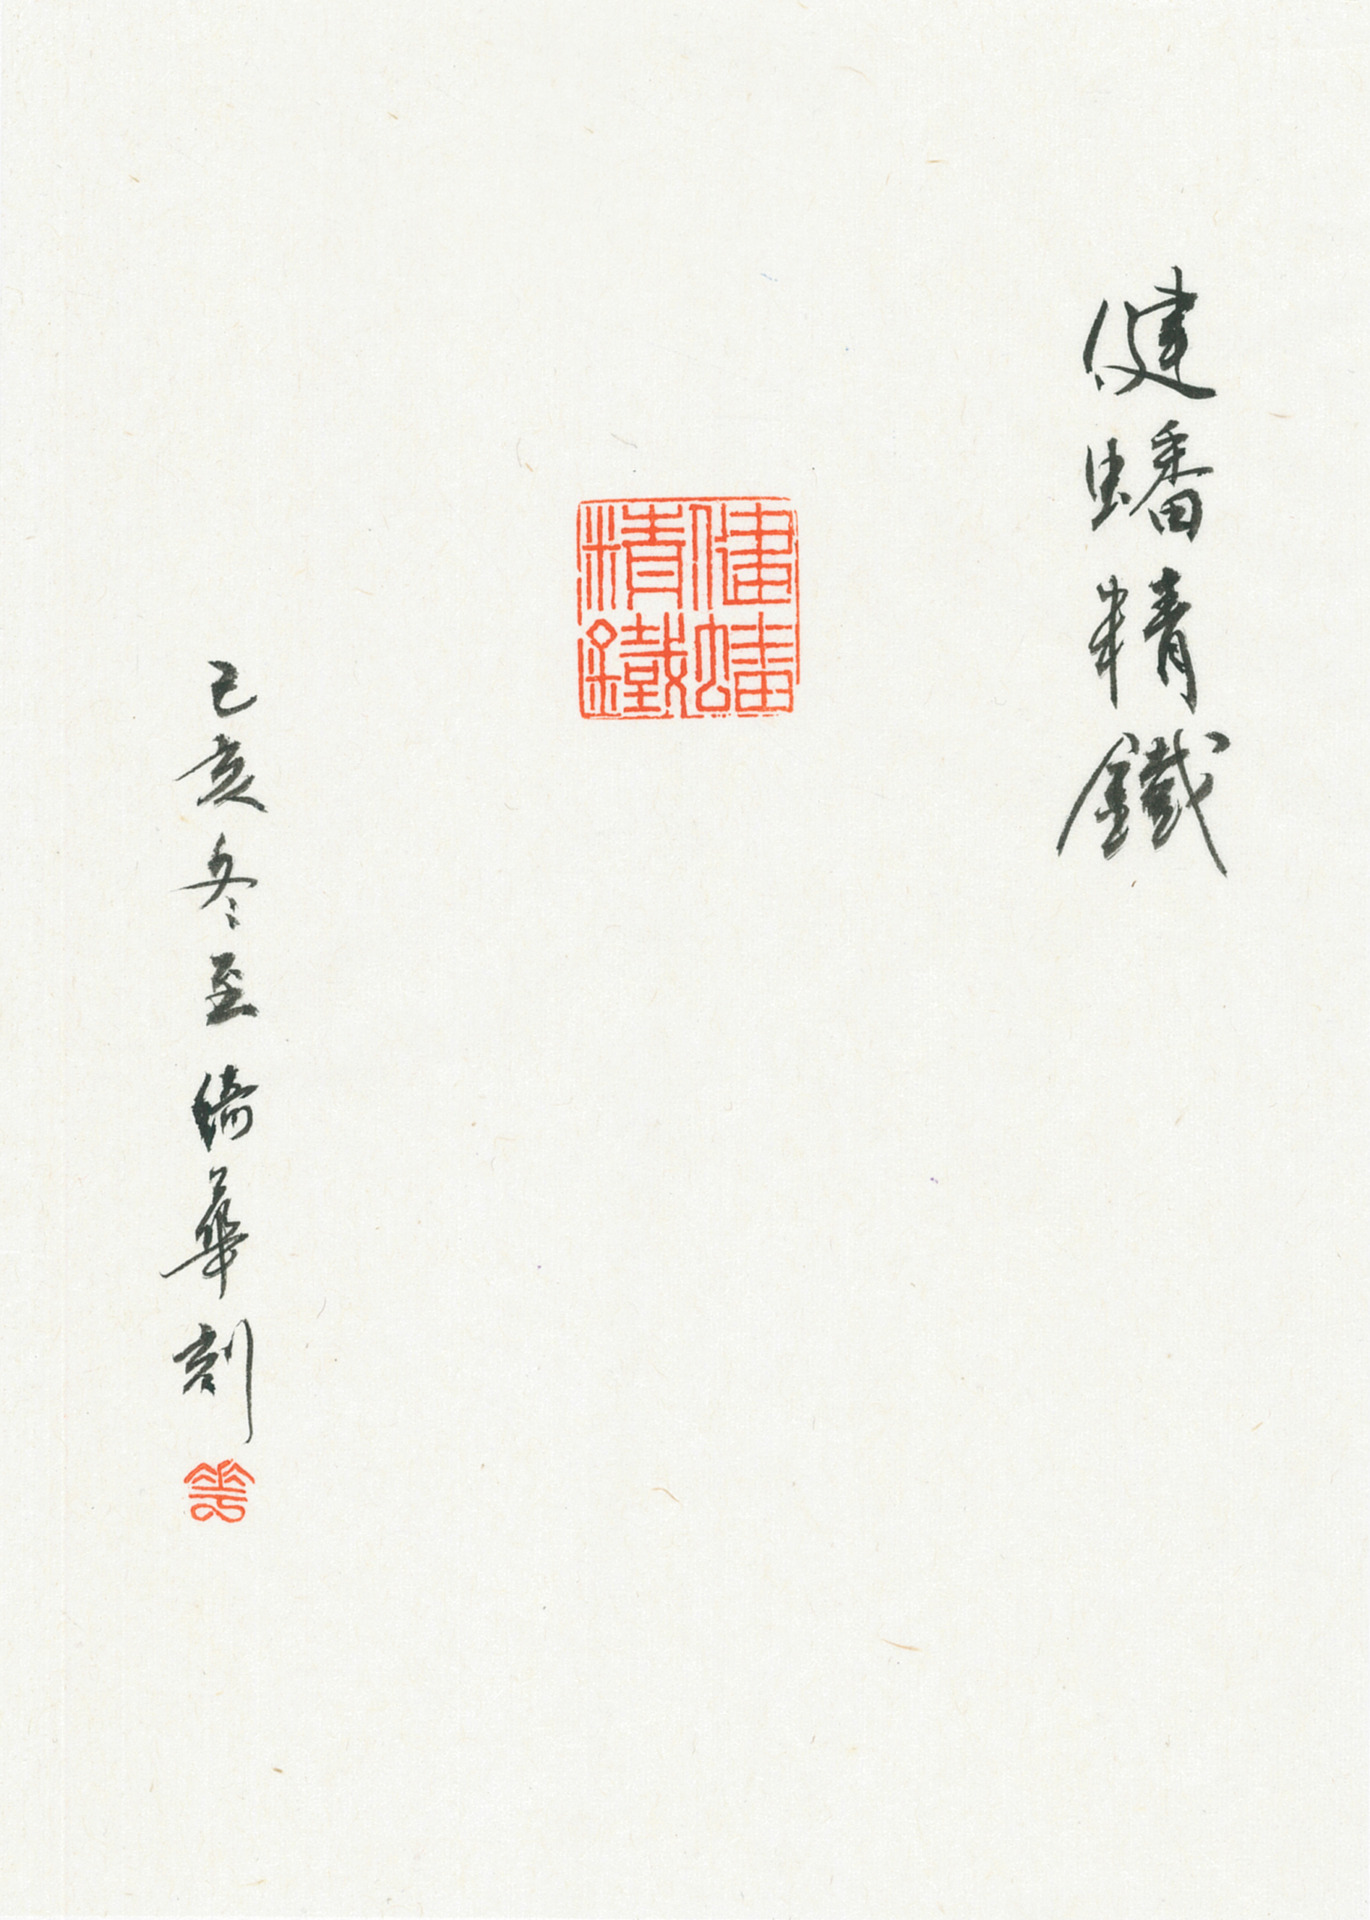 健蟠精鐵
健蟠精鐵
己亥冬至倚華刻